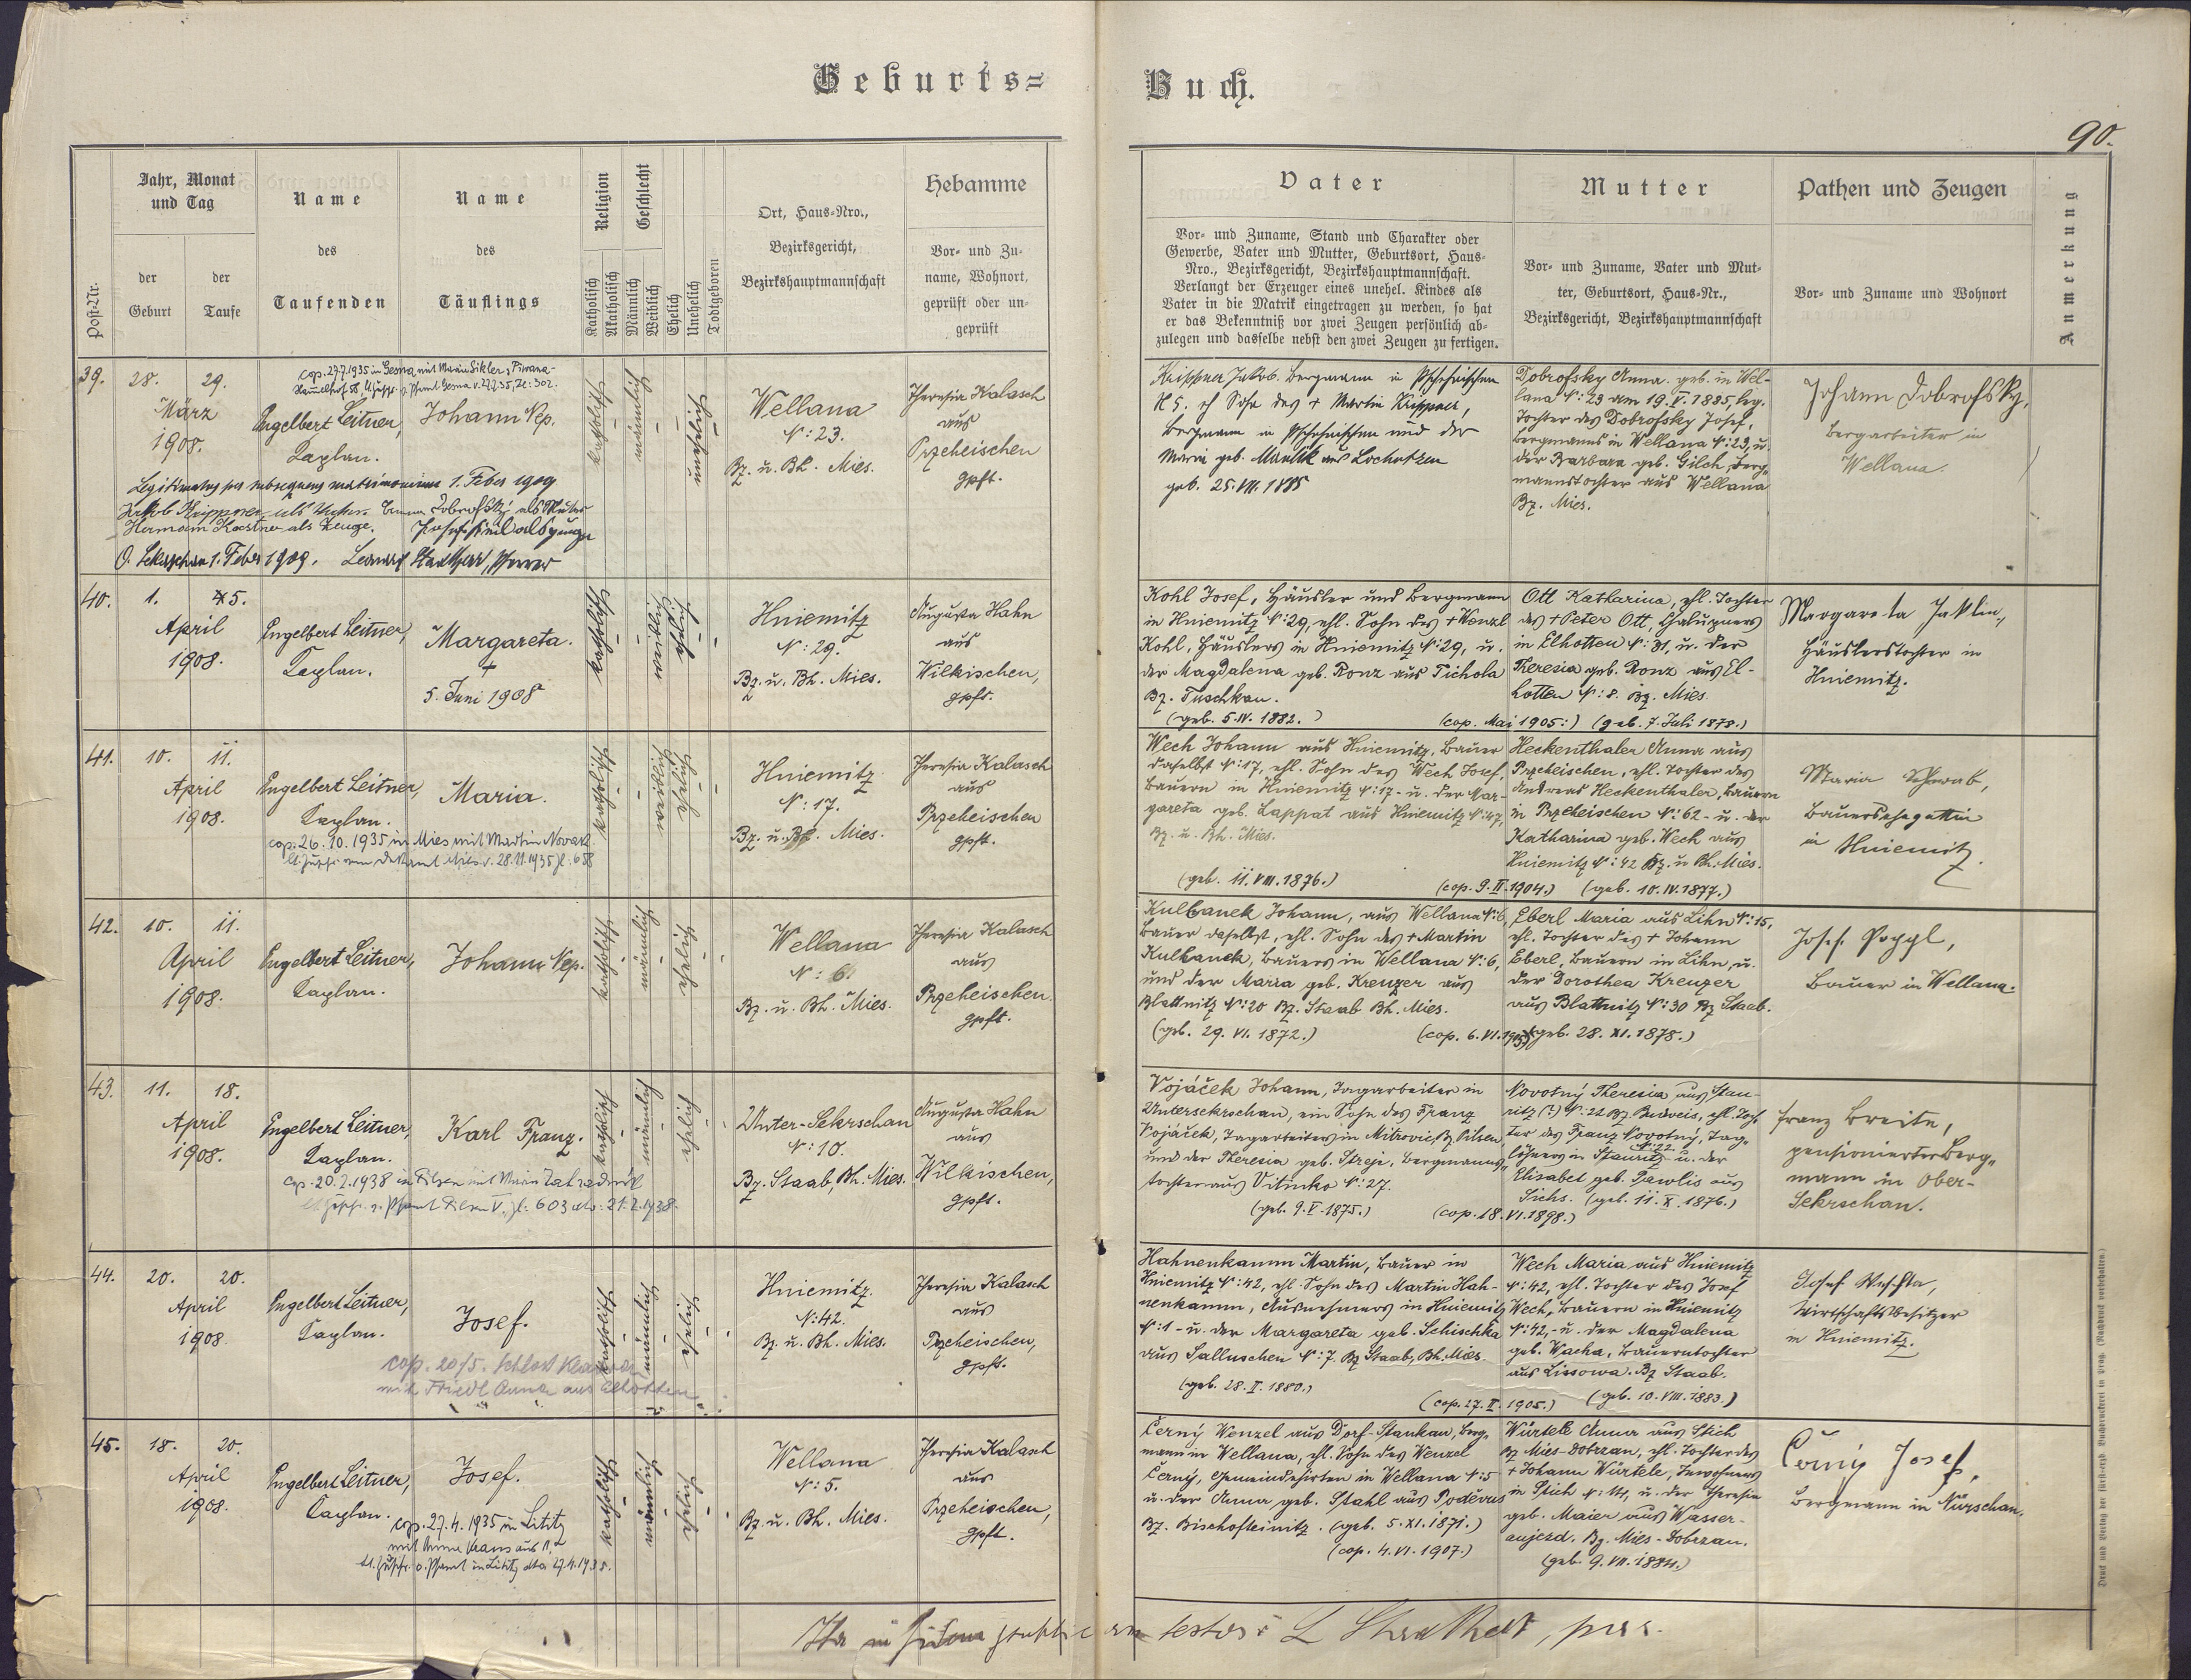 Geburts=
Buch.
90.
Post-Nr.
Jahr, Monat
und Tag
der
Geburt
der
Taufe
Name
des
Taufenden
Name
des
Täuflings
Religion
Katholisch
Akatholisch
Geschlecht
Männlich
Weiblich
Ehelich
Unehelich
Todtgeboren
Ort, Haus=Nro.,
Bezirksgericht,
Bezirkshauptmannschaft
Hebamme
Vor= und Zu=
name, Wohnort,
geprüft oder un=
geprüft
Vater
Vor= und Zuname, Stand und Charakter oder
Gewerbe, Vater und Mutter, Geburtsort, Haus=
Nro., Bezirksgericht, Bezirkshauptmannschaft.
Verlangt der Erzeuger eines unehel. Kindes als
Vater in die Matrik eingetragen zu werden, so hat
er das Bekenntniß vor zwei Zeugen persönlich ab=
zulegen und dasselbe nebst den zwei Zeugen zu fertigen.
Mutter
Vor= und Zuname, Vater und Mut=
ter, Geburtsort, Haus=Nr.,
Bezirksgericht, Bezirkshauptmannschaft
Pathen und Zeugen
Vor= und Zuname und Wohnort
Anmerkung
39.
28.
29.
März
1908.
cop. 27.7.1935 in
Engelbert Leitner,
Kaplan.
Johann Nep.
katholisch
männlich
unehelich
Wellana
N: 23.
Bz. u. Bh. Mies.
Theresia Kalasch
aus
Przeheischen
gpft.
Legitimatus per subsequens matrimonium 1. Feber 1909
Jakob Krippner als Vater. Anna Dobrofsky als Mutter
Hermann Kastner als Zeuge.
O. Sekrschan 1. Feber 1909. Pfarrer
Krippner Jakob. Bergmann in
N 5. eh Sohn des + Martin Krippner,
Bergmann in und der
Maria geb. aus Lochotzen
geb. 25. VII. 1885
Dobrofsky Anna. geb. in Wel-
lana N: 23 am 19. V. 1885, leg.
Tochter des Dobrofsky Josef,
Bergmanns in Wellana N: 23, u.
der Barbara geb. Gilch, Berg=
mannstochter aus Wellana
Bz. Mies.
Johann Dobrofsky,
Bergarbeiter in
Wellana.
40.
1.
5.
April
1908.
Engelbert Leitner,
Kaplan.
Margareta.
+
5. Juni 1908
katholisch
weiblich
ehelich
Hniemitz
N: 29.
Bz. u. Bh. Mies.
Augusta Hahn
aus
Wilkischen,
gpft.
Kohl Josef, Häusler und Bergmann
in Hniemitz N: 29, ehl. Sohn des + Wenzl
Kohl, Häuslers in Hniemitz N: 29, u.
der Magdalena geb. Ronz aus Tichola
Bz. Tuschkau.
(geb. 5. IV. 1882.)
(cop. Mai 1905:)
Ott Katharina, ehl. Tochter
des + Peter Ott, Chalupners
in Elhotten N: 31, u. der
Theresia geb. Ronz aus El-
hotten N: 8. Bz. Mies.
(geb. 7. Juli 1878.)
Margareta
Häuslerstochter in
Hniemitz.
41.
10.
11.
April
1908.
Engelbert Leitner,
Kaplan.
Maria.
cop. 26. 10. 1935 in Mies mit Martin Novak
katholisch
weiblich
ehelich
Hniemitz
N: 17.
Bz. u. Bh. Mies.
Theresia Kalasch
aus
Przeheischen
gpft.
Wech Johann aus Hniemitz, Bauer
daselbst N: 17, ehl. Sohn des Wech Josef,
Bauern in Hniemitz N: 17 - u. der Mar-
gareta geb. Lappat aus Hniemitz N: 47,
Bz. u. Bh. Mies.
(geb. 11. VIII. 1876.)
(cop. 9. II. 1904.)
Heckenthaler Anna aus
Przeheischen, ehl. Tochter des
Andreas Heckenthaler, Bauern
in Przeheischen N: 62 - u. der
Katharina geb. Wech aus
Hniemitz N: 42 Bz. u. Bh. Mies.
(geb. 10. IV. 1877.)
Maria Schwab,
Bauersehegattin
in Hniemitz.
42.
10.
11.
April
1908.
Engelbert Leitner,
Kaplan.
Johann Nep.
katholisch
männlich
ehelich
Wellana
N: 6.
Bz. u. Bh. Mies.
Theresia Kalasch
aus
Przeheischen.
gpft.
Kulhanek Johann, aus Wellana N: 6,
Bauer daselbst, ehl. Sohn des + Martin
Kulhanek, Bauers in Wellana N: 6,
und der Maria geb. Kreuzer aus
Blattnitz N: 20 Bz. Staab Bh. Mies.
(geb. 29. VI. 1872.)
(cop. 6. VI.
Eberl Maria aus Lihn N: 15,
ehl. Tochter des + Johann
Eberl, Bauern in Lihn, u.
der Dorothea Kreuzer
aus Blattnitz N: 30 Bz Staab.
(geb. 28. XI. 1878.)
Josef Poppl,
Bauer in Wellana.
43.
11.
18.
April
1908.
Engelbert Leitner,
Kaplan.
Karl Franz.
cop. 20. 2. 1938 in Pilsen mit
katholisch
männlich
ehelich
Unter-Sekrschan
N: 10.
Bz. Staab, Bh. Mies.
Augusta Hahn
aus
Wilkischen,
gpft.
Vojáček Johann, Tagarbeiter in
Untersekrschan, ein Sohn des Franz
Vojáček, Tagarbeiters in Mitrovic, Bz Pilsen,
und der Theresia geb. Streje, Bergmanns=
tochter aus Vitinka N: 27.
(geb. 9. V. 1875.)
(cop. 18. VI. 1898.)
Novotný Theresia aus Stau-
ritz (?) N: 22 Bz. Budweis, ehl. Toch=
ter des Franz Novotný, Tag=
löhners in Stauritz N: 22 u. der
Elisabet geb. Pawlis aus
Sichs. (geb. 11. X. 1876.)
Franz Breite,
pensionierter Berg=
mann in Ober-
Sekrschan.
44.
20.
20.
April
1908.
Engelbert Leitner,
Kaplan.
Josef.
cop. 20/5. Schloss
mit Friedl Anna aus Elhotten
katholisch
männlich
ehelich
Hniemitz.
N: 42.
Bz. u. Bh. Mies.
Theresia Kalasch
aus
Przeheischen,
gpft.
Hahnenkamm Martin, Bauer in
Hniemitz N: 42, ehl. Sohn des Martin Hah-
nenkamm, Ausnehmers in Hniemitz
N: 1 - u. der Margareta geb. Schischka
aus Salluschen N: 7. Bz Staab, Bh. Mies.
(geb. 28. II. 1880.)
(cop. 27. II. 1905.)
Wech Maria aus Hniemitz
N: 42, ehl. Tochter des Josef
Wech, Bauern in Hniemitz
N: 42, - u. der Magdalena
geb. Wacha, Bauerntochter
aus Lissowa. Bz Staab.
(geb. 10. VIII. 1883.)
Josef
Wirtschaftsbesitzer
in Hniemitz.
45.
18.
20.
April
1908.
Engelbert Leitner,
Kaplan.
Josef.
cop. 27. 4. 1935 in Lititz
katholisch
männlich
ehelich
Wellana
N: 5.
Bz. u. Bh. Mies.
Theresia Kalasch
aus
Przeheischen,
gpft.
Černý Wenzel aus Dorf-Stankau, Berg=
mann in Wellana, ehl. Sohn des Wenzel
Černý, Gemeindehirten in Wellana N: 5
u. der Anna geb. Stahl aus Poděvus
Bz. Bischofteinitz. (geb. 5. XI. 1871.)
(cop. 4. VI. 1907.)
Würtele Anna aus Stich
Bz Mies-Dobrzan, ehl. Tochter des
+ Johann Würtele, Inwohners
in Stich N: 111, u. der Theresia
geb. Maier aus Wasser-
aujezd. Bz. Mies-Dobrzan.
(geb. 9. VII. 1884.)
Černý Josef,
Bergmann in Nürschan.
Druck und Verlag der fürsterzb. Buchdruckerei in Prag. (Nachdruck vorbehalten.)